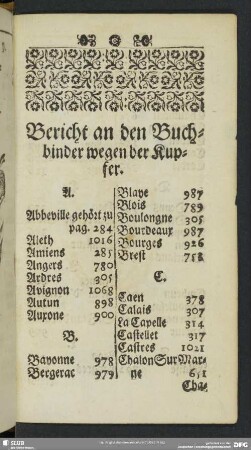 Bericht an den Buch-
binder wegen der Kup-
fer.
A.
Abbeville gehört zu
pag. 284
Aleth 1016
Amiens 285
Angers 780
Ardres 305
Avignon 1068
Autun 898
Auxone 900
B.
Bayonne 978
Bergerac 979
Blaye 987
Blois 789
Boulongne 305
Bourdeaux 987
Bourges 926
Brest
C.
Caen 378
Calais 307
La Capelle 314
Castellet 317
Castres 1021
Chalon Sur Mar-
ne 651
Cha-
SLUB